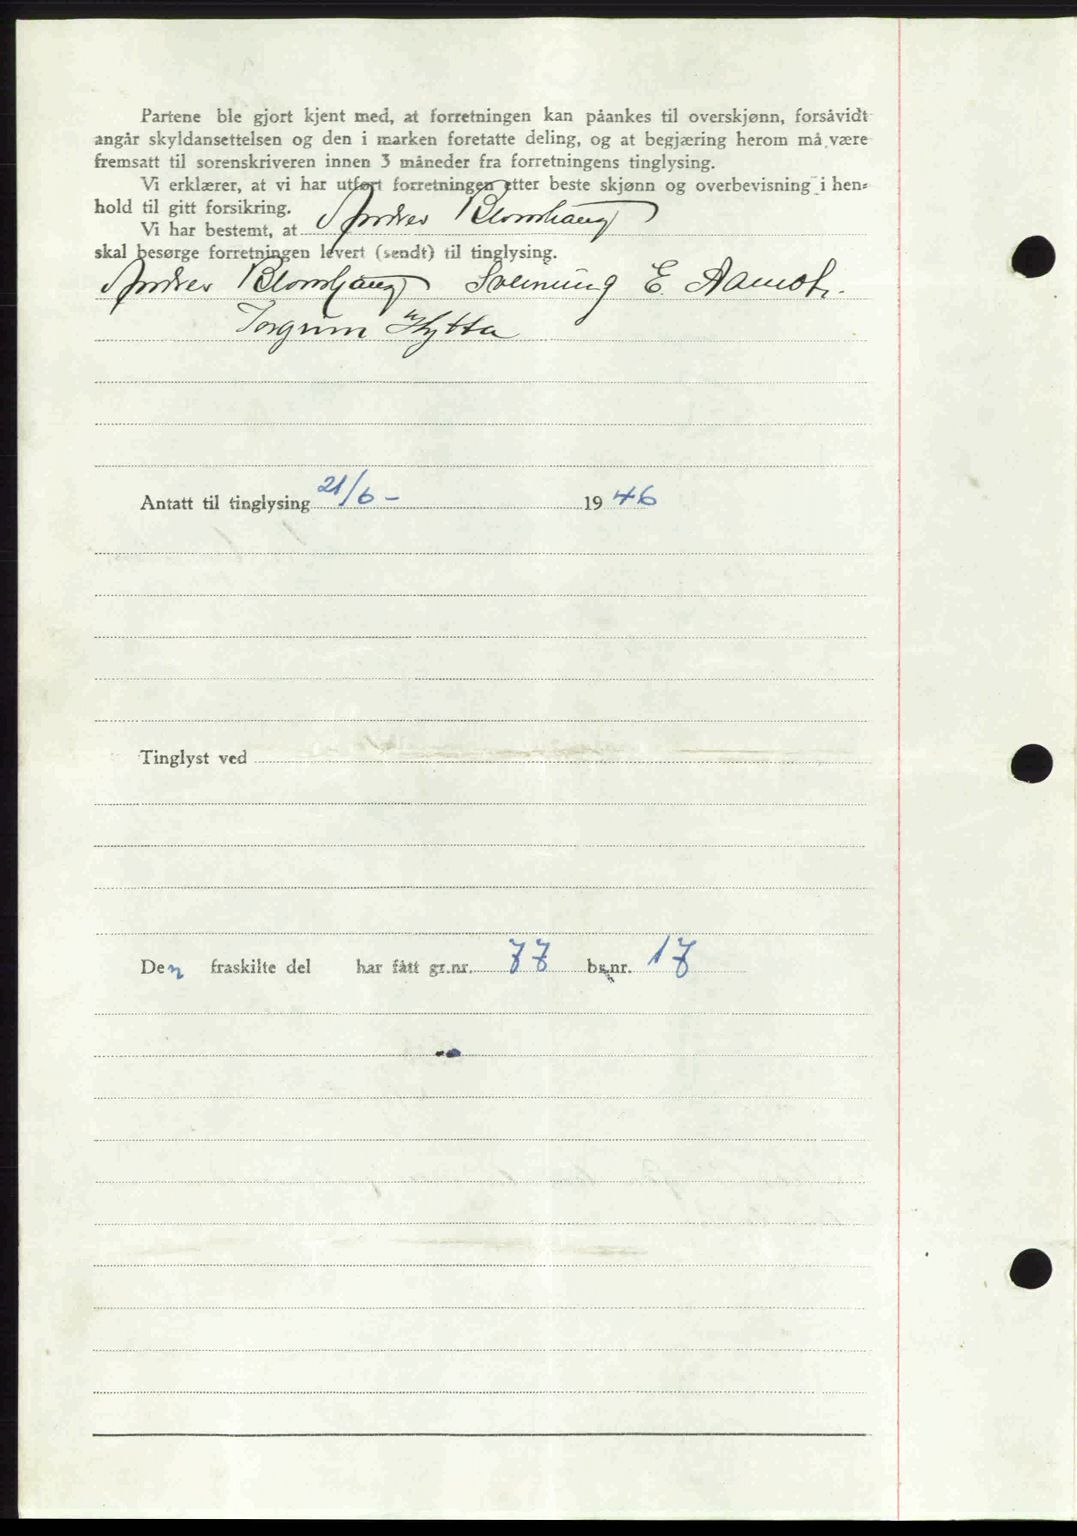 Partene ble gjort kjent med, at forretningen kan påankes til overskjønn, forsåvidt
angår skyldansettelsen og den i marken foretatte deling, og at begjæring herom må være
fremsatt til sorenskriveren innen 3 måneder fra forretningens tinglysing.
Vi erklærer, at vi har utført forretningen etter beste skjønn og overbevisning i hen-
hold til gitt forsikring.
Vi har bestemt, at Andres Blomhaug
skal besørge forretningen levert (sendt) til tinglysing.
Andres Blomhaug Sveinung E. Aamot.
Torgrim Hytta
Antatt til tinglysing 21/6 - 1946
Tinglyst ved
Den fraskilte del har fått gr.nr. 77 br.nr. 17